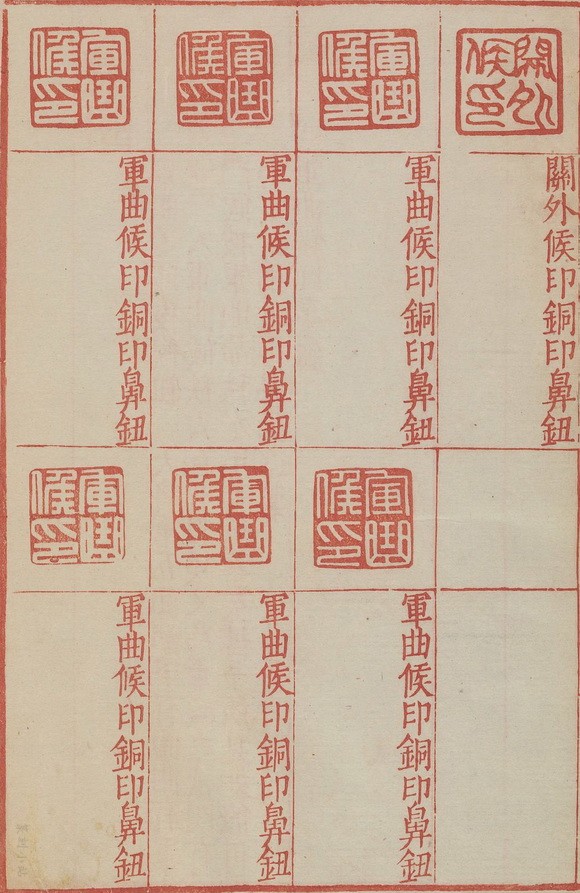 關外侯印
關外候印銅印鼻鈕
軍曲候印
軍曲候印銅印鼻鈕
軍曲候印
軍曲候印銅印鼻鈕
軍曲候印
軍曲候印銅印鼻鈕
軍曲候印
軍曲候印銅印鼻鈕
軍曲候印
軍曲候印銅印鼻鈕
軍曲候印
軍曲候印銅印鼻鈕